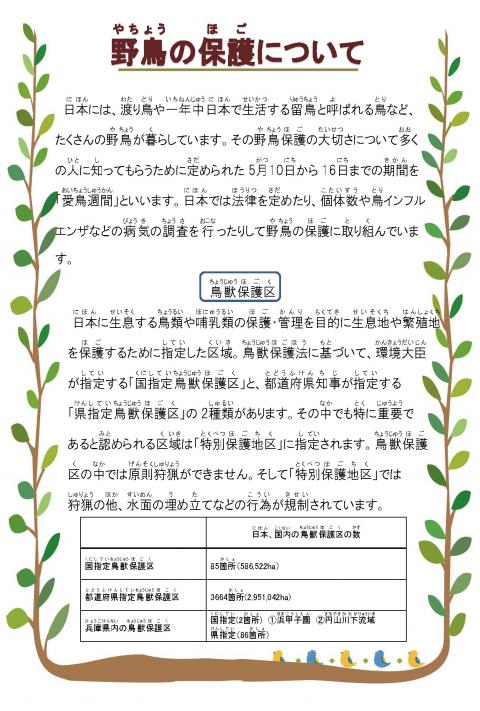 野鳥の保護について
日本には、渡り鳥や一年中日本で生活する留鳥と呼ばれる鳥など、
たくさんの野鳥が暮らしています。その野鳥保護の大切さについて多く
の人に知ってもらうために定められた5月10日から16日までの期間を
「愛鳥週間」といいます。日本では法律を定めたり、個体数や鳥インフル
エンザなどの病気の調査を行ったりして野鳥の保護に取り組んでいま
す。
鳥獣保護区
日本に生息する鳥類や哺乳類の保護・管理を目的に生息地や繁殖地
を保護するために指定した区域。鳥獣保護法に基づいて、環境大臣
が指定する「国指定鳥獣保護区」と、都道府県知事が指定する
「県指定鳥獣保護区」の2種類があります。その中でも特に重要で
あると認められる区域は「特別保護地区」に指定されます。鳥獣保護
区の中では原則狩猟ができません。そして「特別保護地区」では
狩猟の他、水面の埋め立てなどの行為が規制されています。
日本、国内の鳥獣保護区の数
国指定鳥獣保護区 85箇所(586,522ha)
都道府県指定鳥獣保護区 3664箇所(2,951,042ha)
兵庫県内の鳥獣保護区 国指定(2箇所) ①浜甲子園 ②円山川下流域
県指定(86箇所)